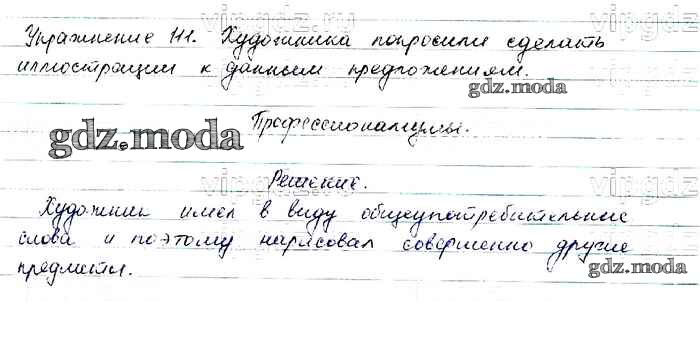 vipgdz.ru
Упражнение 111. Художника попросили сделать
иллюстрации к данным предложениям.
gdz.moda
Профессионализмы.
gdz.moda
Решение.
vipgdz.ru
Художник имел в виду общеупотребительные
слова и поэтому нарисовал совершенно другие
предметы.
gdz.moda